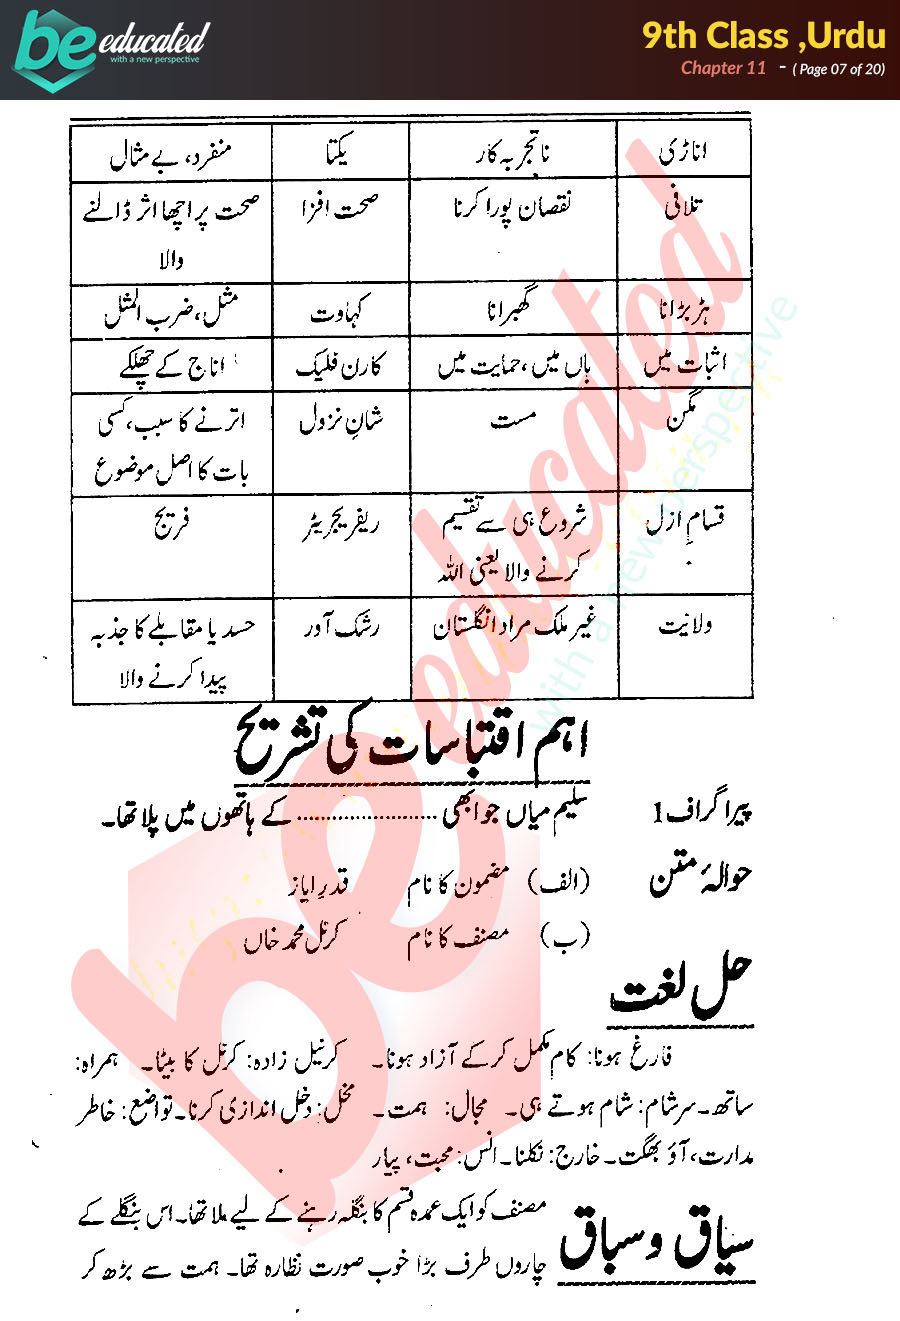 be educated
with a new perspective
9th Class ,Urdu
Chapter 11 - ( Page 07 of 20)
اناڑی ناتجربہ کار یکتا منفرد، بے مثال
تلافی نقصان پورا کرنا صحت افزا صحت پر اچھا اثر ڈالنے
والا
ہڑبڑانا گھبرانا کہاوت مثل، ضرب المثل
اثبات میں ہاں میں، حمایت میں کارن فلیک اناج کے چھلکے
مگن مست شانِ نزول اترنے کا سبب، کسی
بات کا اصل موضوع
قسامِ ازل شروع ہی سے تقسیم ریفریجریٹر فریج
کرنے والا یعنی اللہ
ولایت غیر ملک مراد انگلستان رشک آور حسد یا مقابلے کا جذبہ
پیدا کرنے والا
اہم اقتباسات کی تشریح
پیراگراف 1 سلیم میاں جو ابھی ........................ کے ہاتھوں میں پلا تھا۔
حوالۂ متن (الف) مضمون کا نام قدرِ ایاز
(ب) مصنف کا نام کرنل محمد خاں
حل لغت
فارغ ہونا: کام مکمل کر کے آزاد ہونا۔ کرنیل زادہ: کرنل کا بیٹا۔ ہمراہ:
ساتھ۔ سرشام: شام ہوتے ہی۔ مجال: ہمت۔ مخل: دخل اندازی کرنا۔ تواضع: خاطر
مدارت، آؤ بھگت۔ خارج: نکلنا۔ انس: محبت، پیار
سیاق و سباق مصنف کو ایک عمدہ قسم کا بنگلہ رہنے کے لیے ملا تھا۔ اس بنگلے کے
چاروں طرف بڑا خوب صورت نظارہ تھا۔ ہمت سے بڑھ کر
be educated
with a new perspective